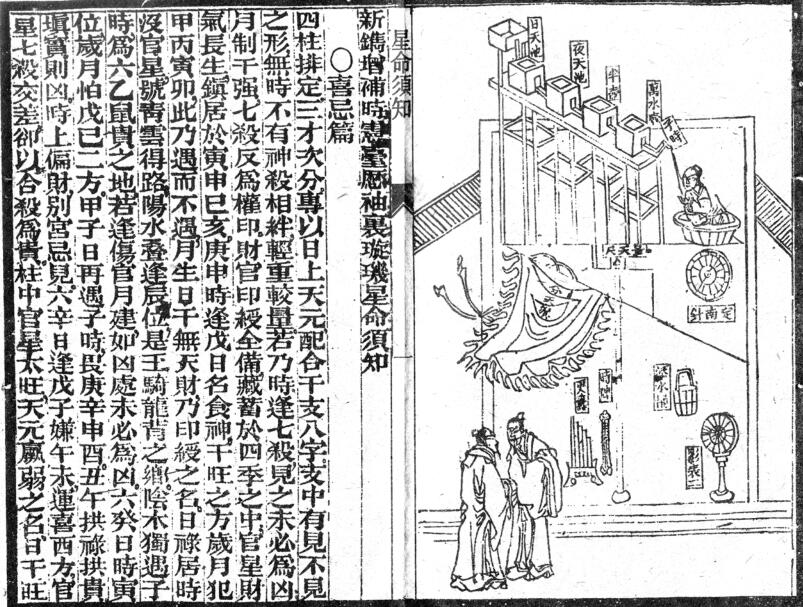 日天池
夜天池
萬水壺
子時
量天尺
定南針
時牌
更籌
星命須知
新鐫增補時憲臺曆袖裏璇璣星命須知
○喜忌篇
四柱排定三才次分專以日上天元配合干支八字支中有見不見
之形無時不有神殺相絆輕重較量若乃時逢七殺見之未必爲凶
月制干強七殺反爲權印財官印綬全備藏蓄於四季之中官星財
氣長生鎮居於寅申巳亥庚申時逢戊日名食神干旺之方歲月犯
甲丙寅卯此乃遇而不遇月生日干無天財乃印綬之名日祿居時
沒官星號靑雲得路陽水叠逢辰位是壬騎龍背之鄉陰木獨遇子
時爲六乙鼠貴之地若逢傷官月建如凶處未必爲凶六癸日時寅
位歲月怕戊巳二方甲子日再遇子時畏庚辛申酉丑午拱祿拱貴
塡實則凶時上偏財別宮忌見六辛日逢戊子嫌午未運喜西方官
星七殺交差卻以合殺爲貴柱中官星太旺天元羸弱之名日干旺